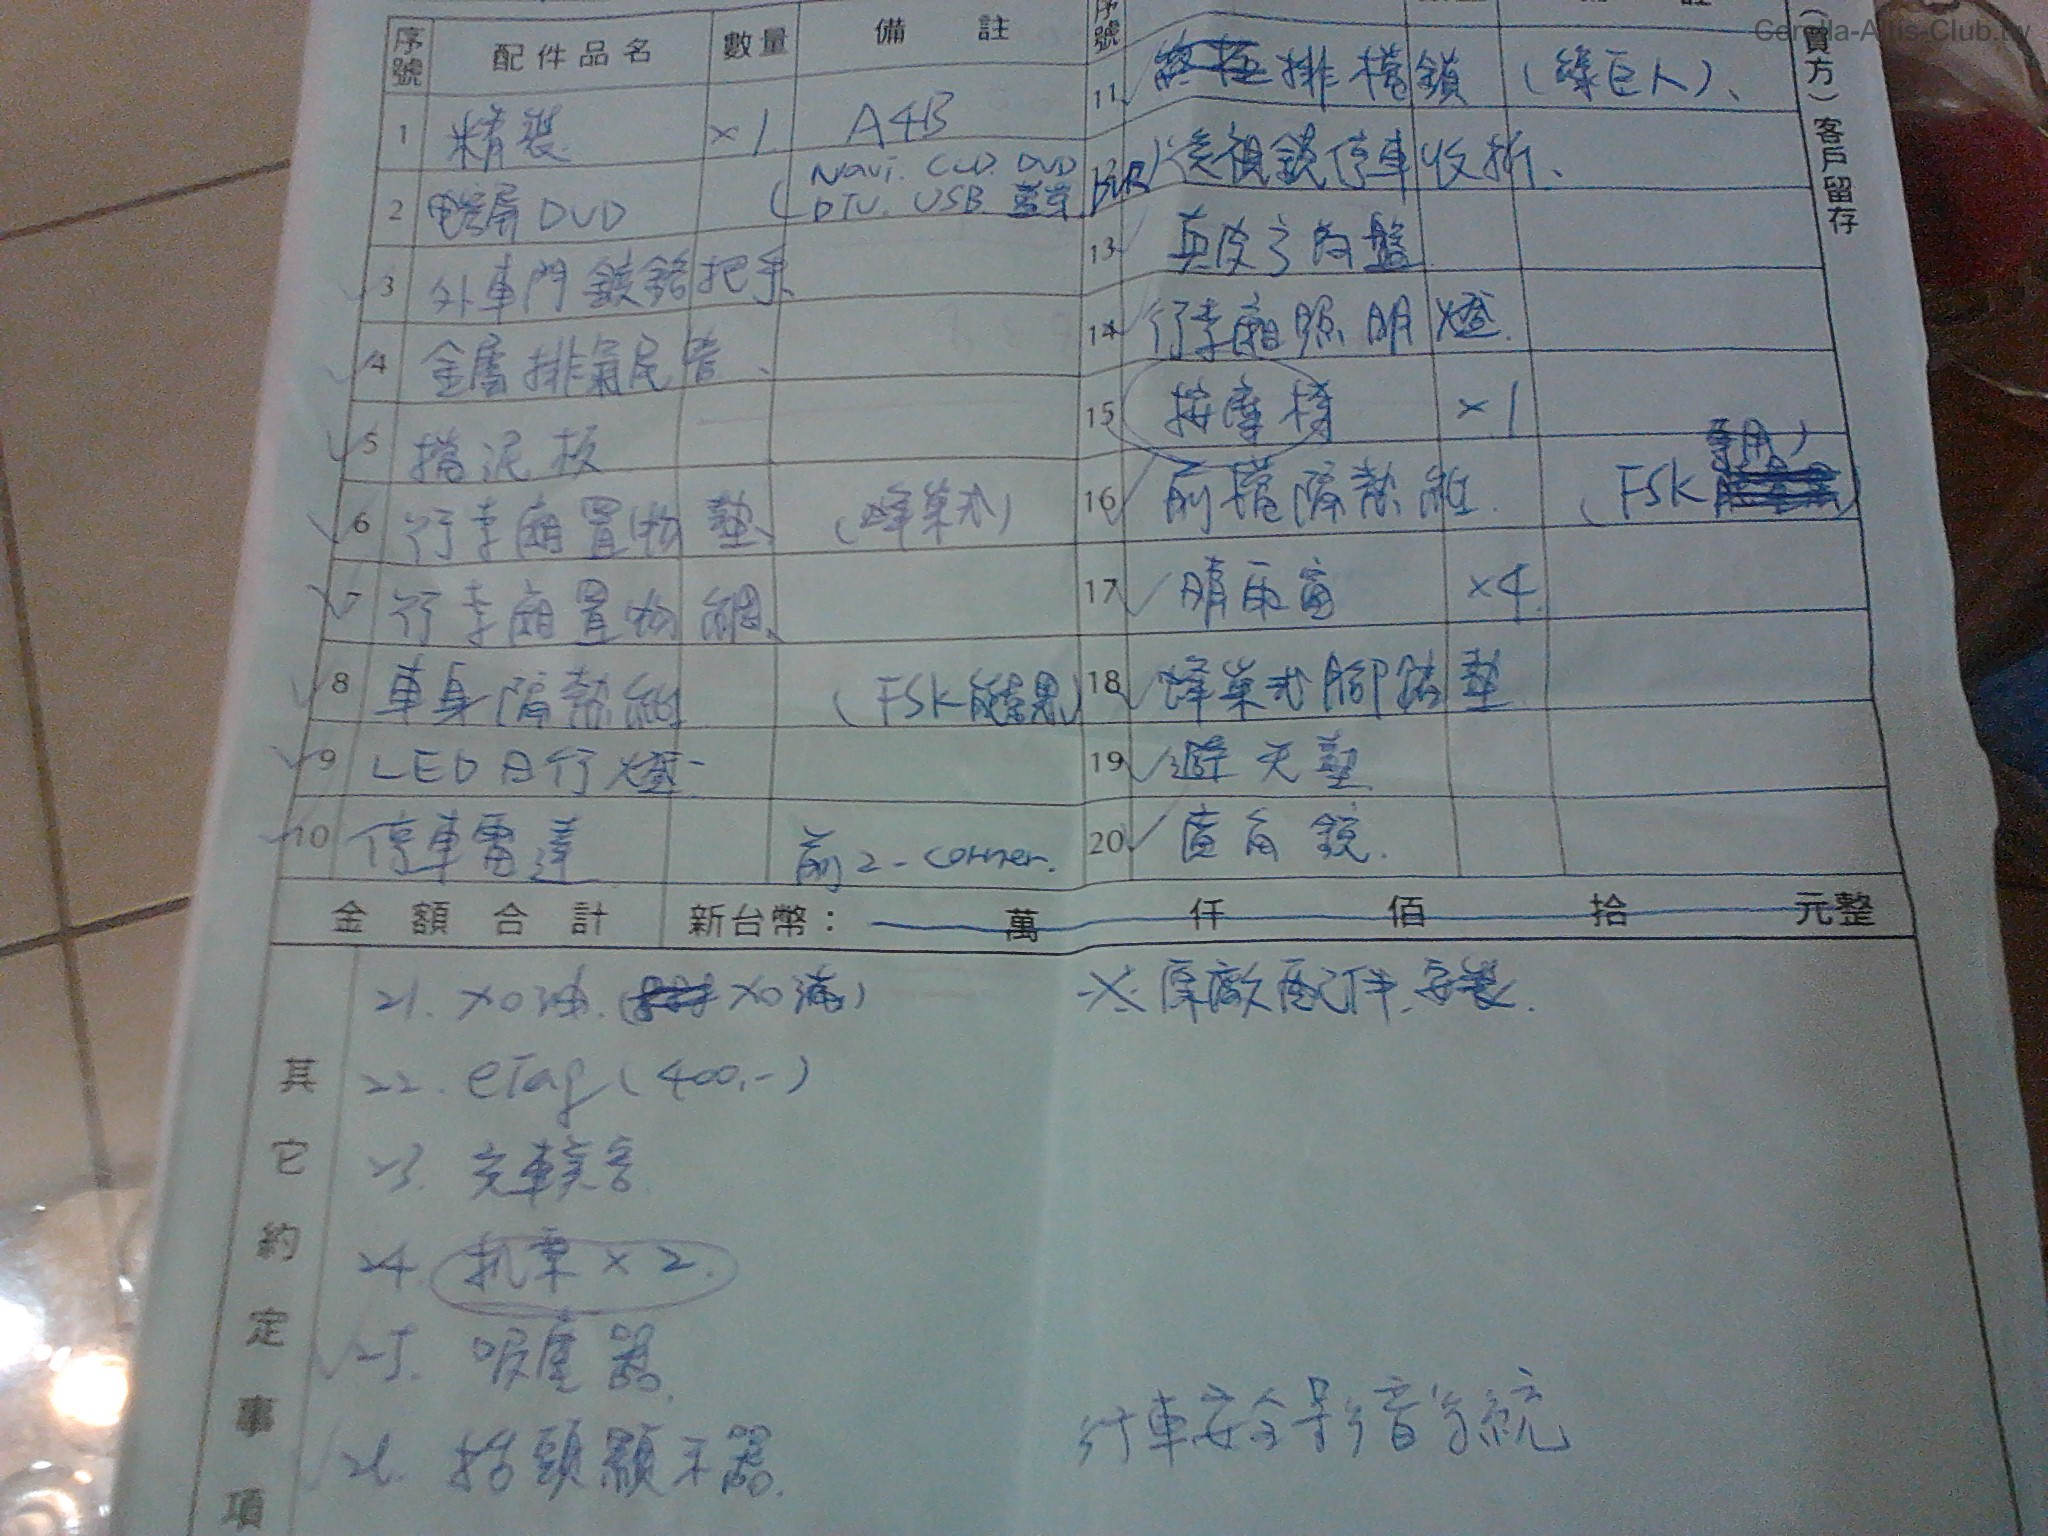 Corolla-Altis-Club.tw
序號 配件品名 數量 備註
1 精裝 ×1 A4B
2 DVD (Navi. DVD
DTV. USB 藍芽 DVR)
3 外車門鍍鉻把手、
4 金屬排氣尾管、
5 擋泥板
6 行李廂置物墊、 (蜂巢式)
7 行李廂置物網、
8 車身隔熱紙 (FSK
9 LED日行燈
10 停車雷達 前2-corner.
序號
11 排檔鎖 (綠巨人)、
後視鏡停車收折、
13 真皮方向盤
14 行李廂照明燈.
15 按摩椅 ×1
16 前擋隔熱紙. (FSK 專用)
17 晴雨窗 ×4
18 蜂巢式腳踏墊
19 避光墊
20 廣角鏡.
(買方)客戶留存
金額合計 新台幣: 萬 仟 佰 拾 元整
其它約定事項
21. 加油. (加滿)
22. eTag (400.-)
23. 全車
24. 機票×2.
25. 吸塵器.
26. 抬頭顯示器.
※原廠配件、安裝.
行車安全影音系統